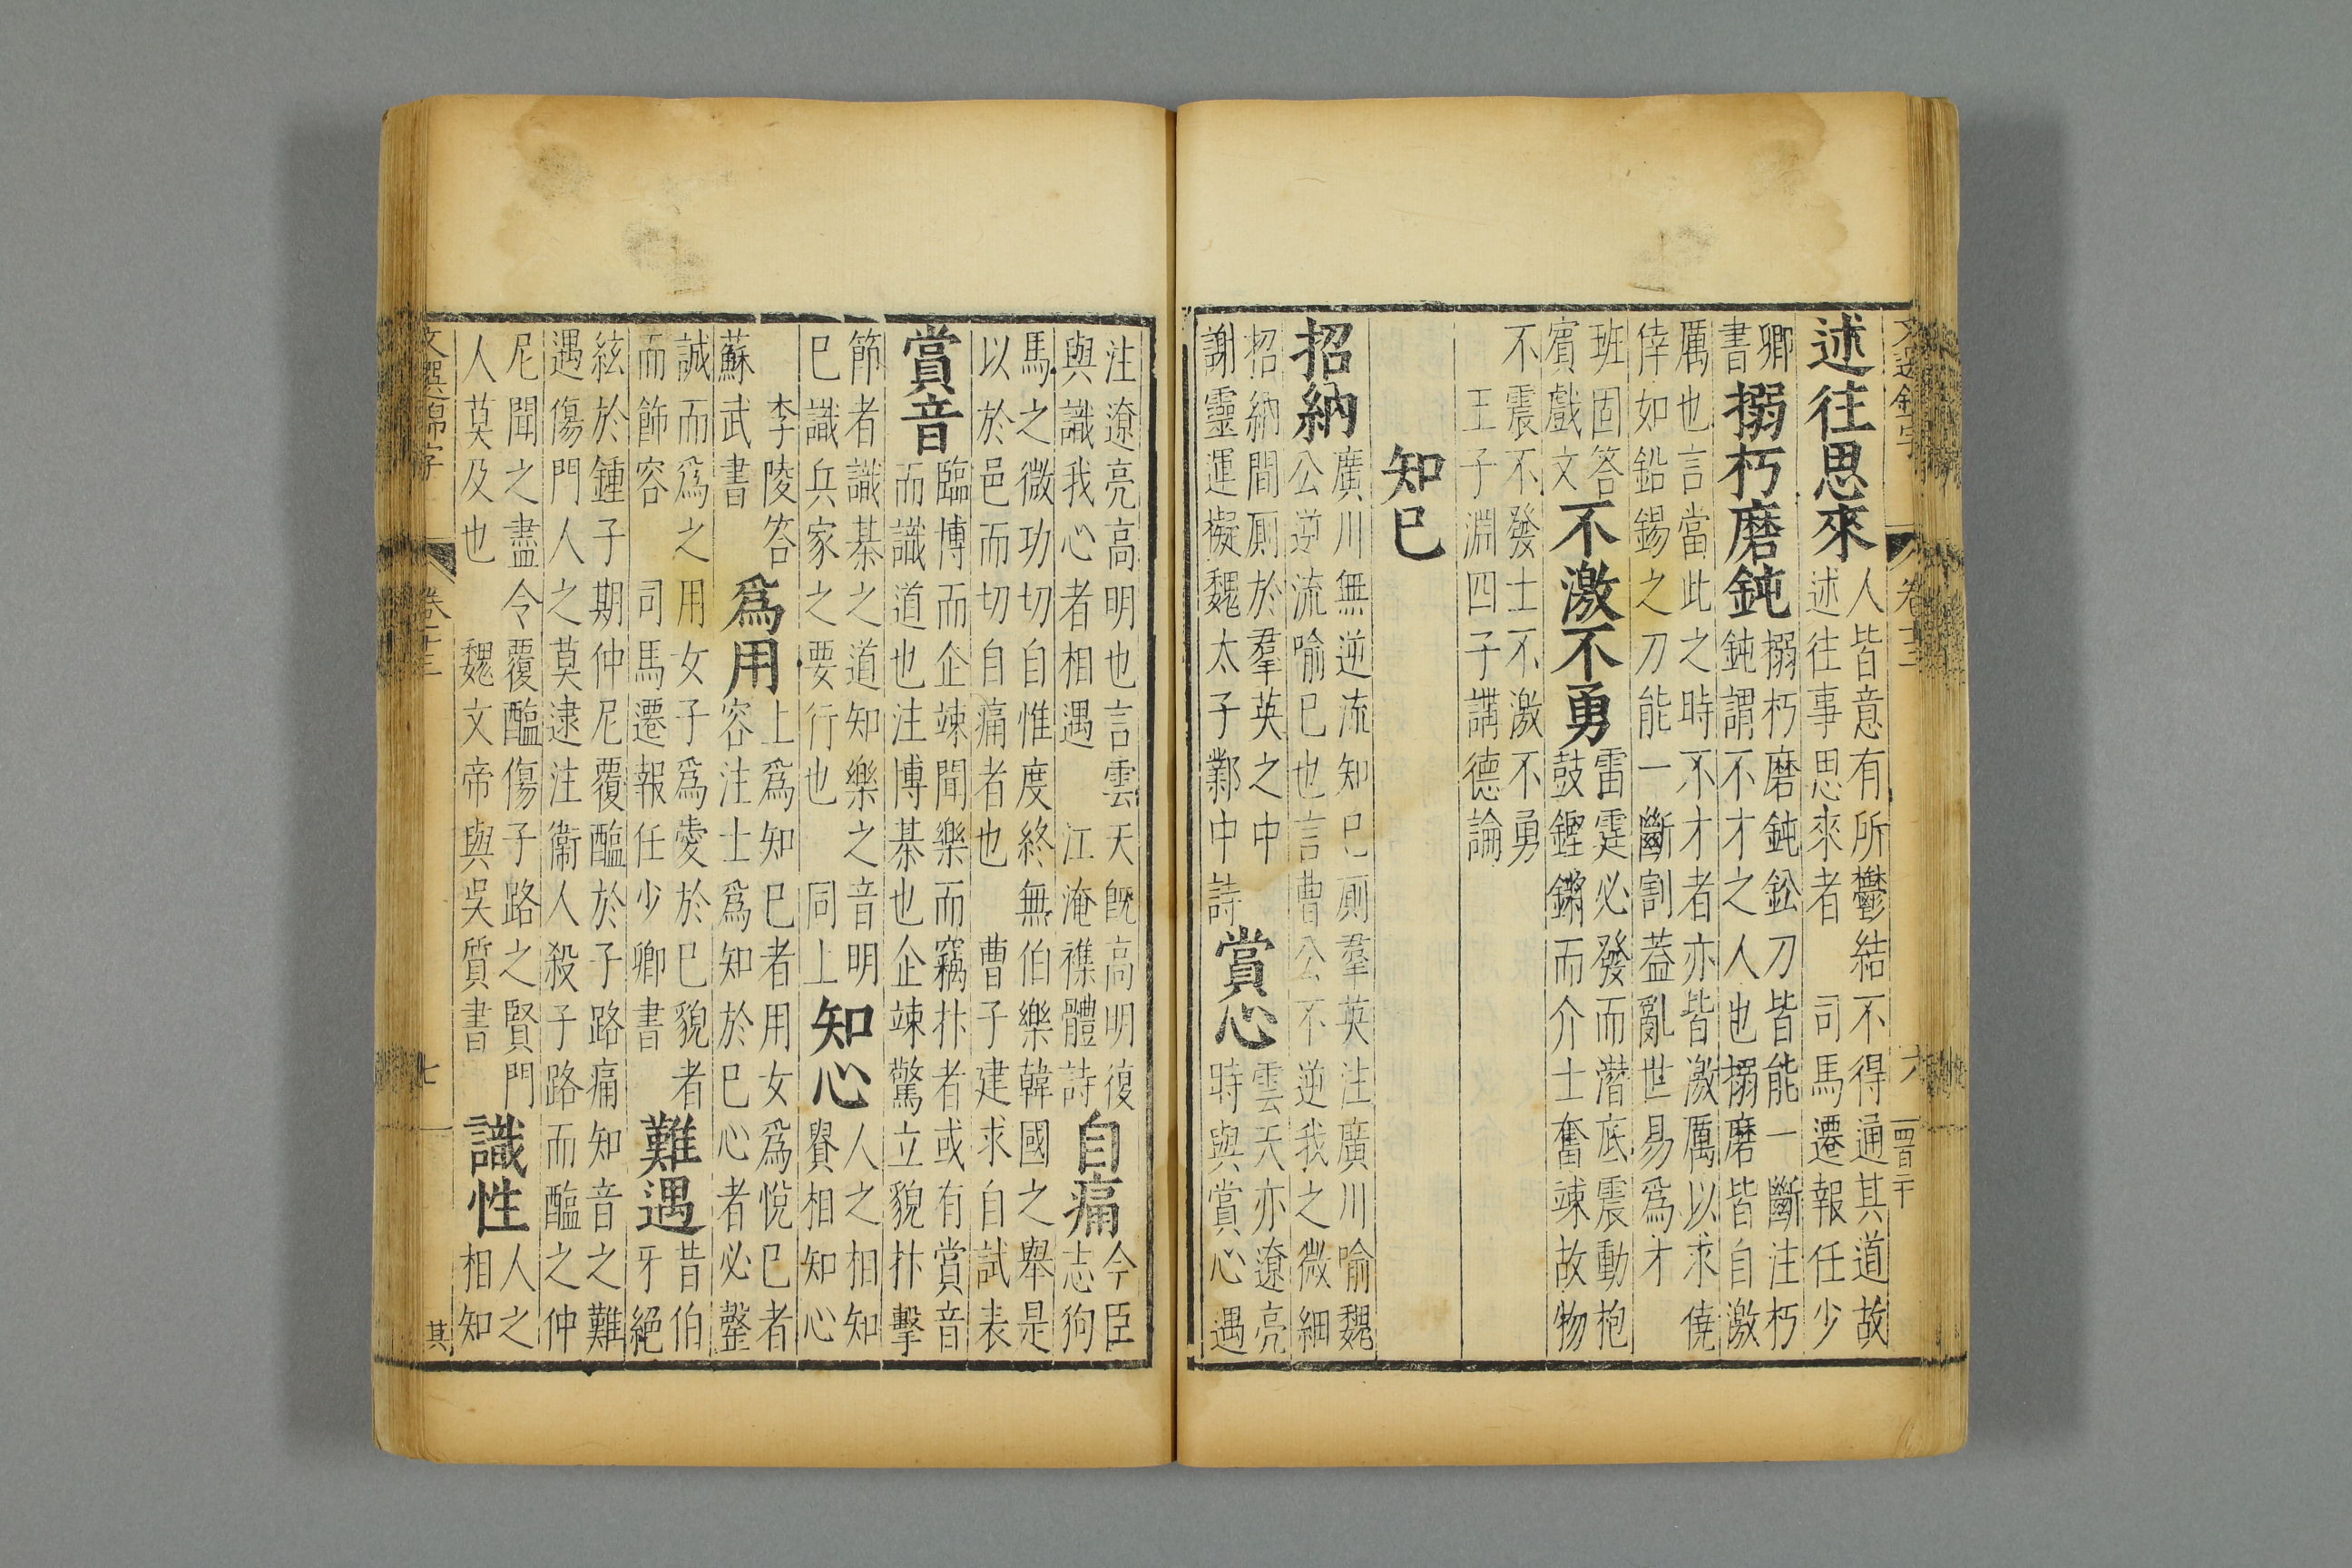 述往思來
人皆意有所鬱結不得通其道故
述往事思來者　司馬遷報任少
卿
書
搦朽磨鈍
搦朽磨鈍鈆刀皆能一斷注朽
鈍謂不才之人也搦磨皆自激
厲也言當此之時不才者亦皆激厲以求僥
倖如鉛錫之刀能一斷割葢亂世易爲才
班固答
賓戲文
不激不勇
雷霆必發而潛底震動枹
鼓鏗鏘而介士奮竦故物
不震不發士不激不勇
王子淵四子講德論
知巳
招納
廣川無逆流知巳厠羣英注廣川喻魏
公逆流喻巳也言曹公不逆我之微細
招納間厠於羣英之中
謝靈運擬魏太子鄴中詩
賞心
雲天亦遼亮
時與賞心遇
文選錦字
卷十三
六
注遼亮高明也言雲天旣高明復
與識我心者相遇　江淹襍體詩
自痛
今臣
志狗
馬之微功切自惟度終無伯樂韓國之舉是
以於邑而切自痛者也　曹子建求自試表
賞音
臨博而企竦聞樂而竊抃者或有賞音
而識道也注博棊也企竦驚立貌抃擊
節者識棊之道知樂之音明
巳識兵家之要行也　同上
知心
人之相知
貴相知心
李陵答
蘇武書
爲用
上爲知巳者用女爲悅巳者
容注士爲知於巳心者必罄
誠而爲之用女子爲愛於巳貌者
而飾容　司馬遷報任少卿書
難遇
昔伯
牙絕
絃於鍾子期仲尼覆醢於子路痛知音之難
遇傷門人之莫逮注衞人殺子路而醢之仲
尼聞之盡令覆醢傷子路之賢門
人莫及也　魏文帝與吳質書
識性
人之
相知
文選錦字
卷十三
七
其